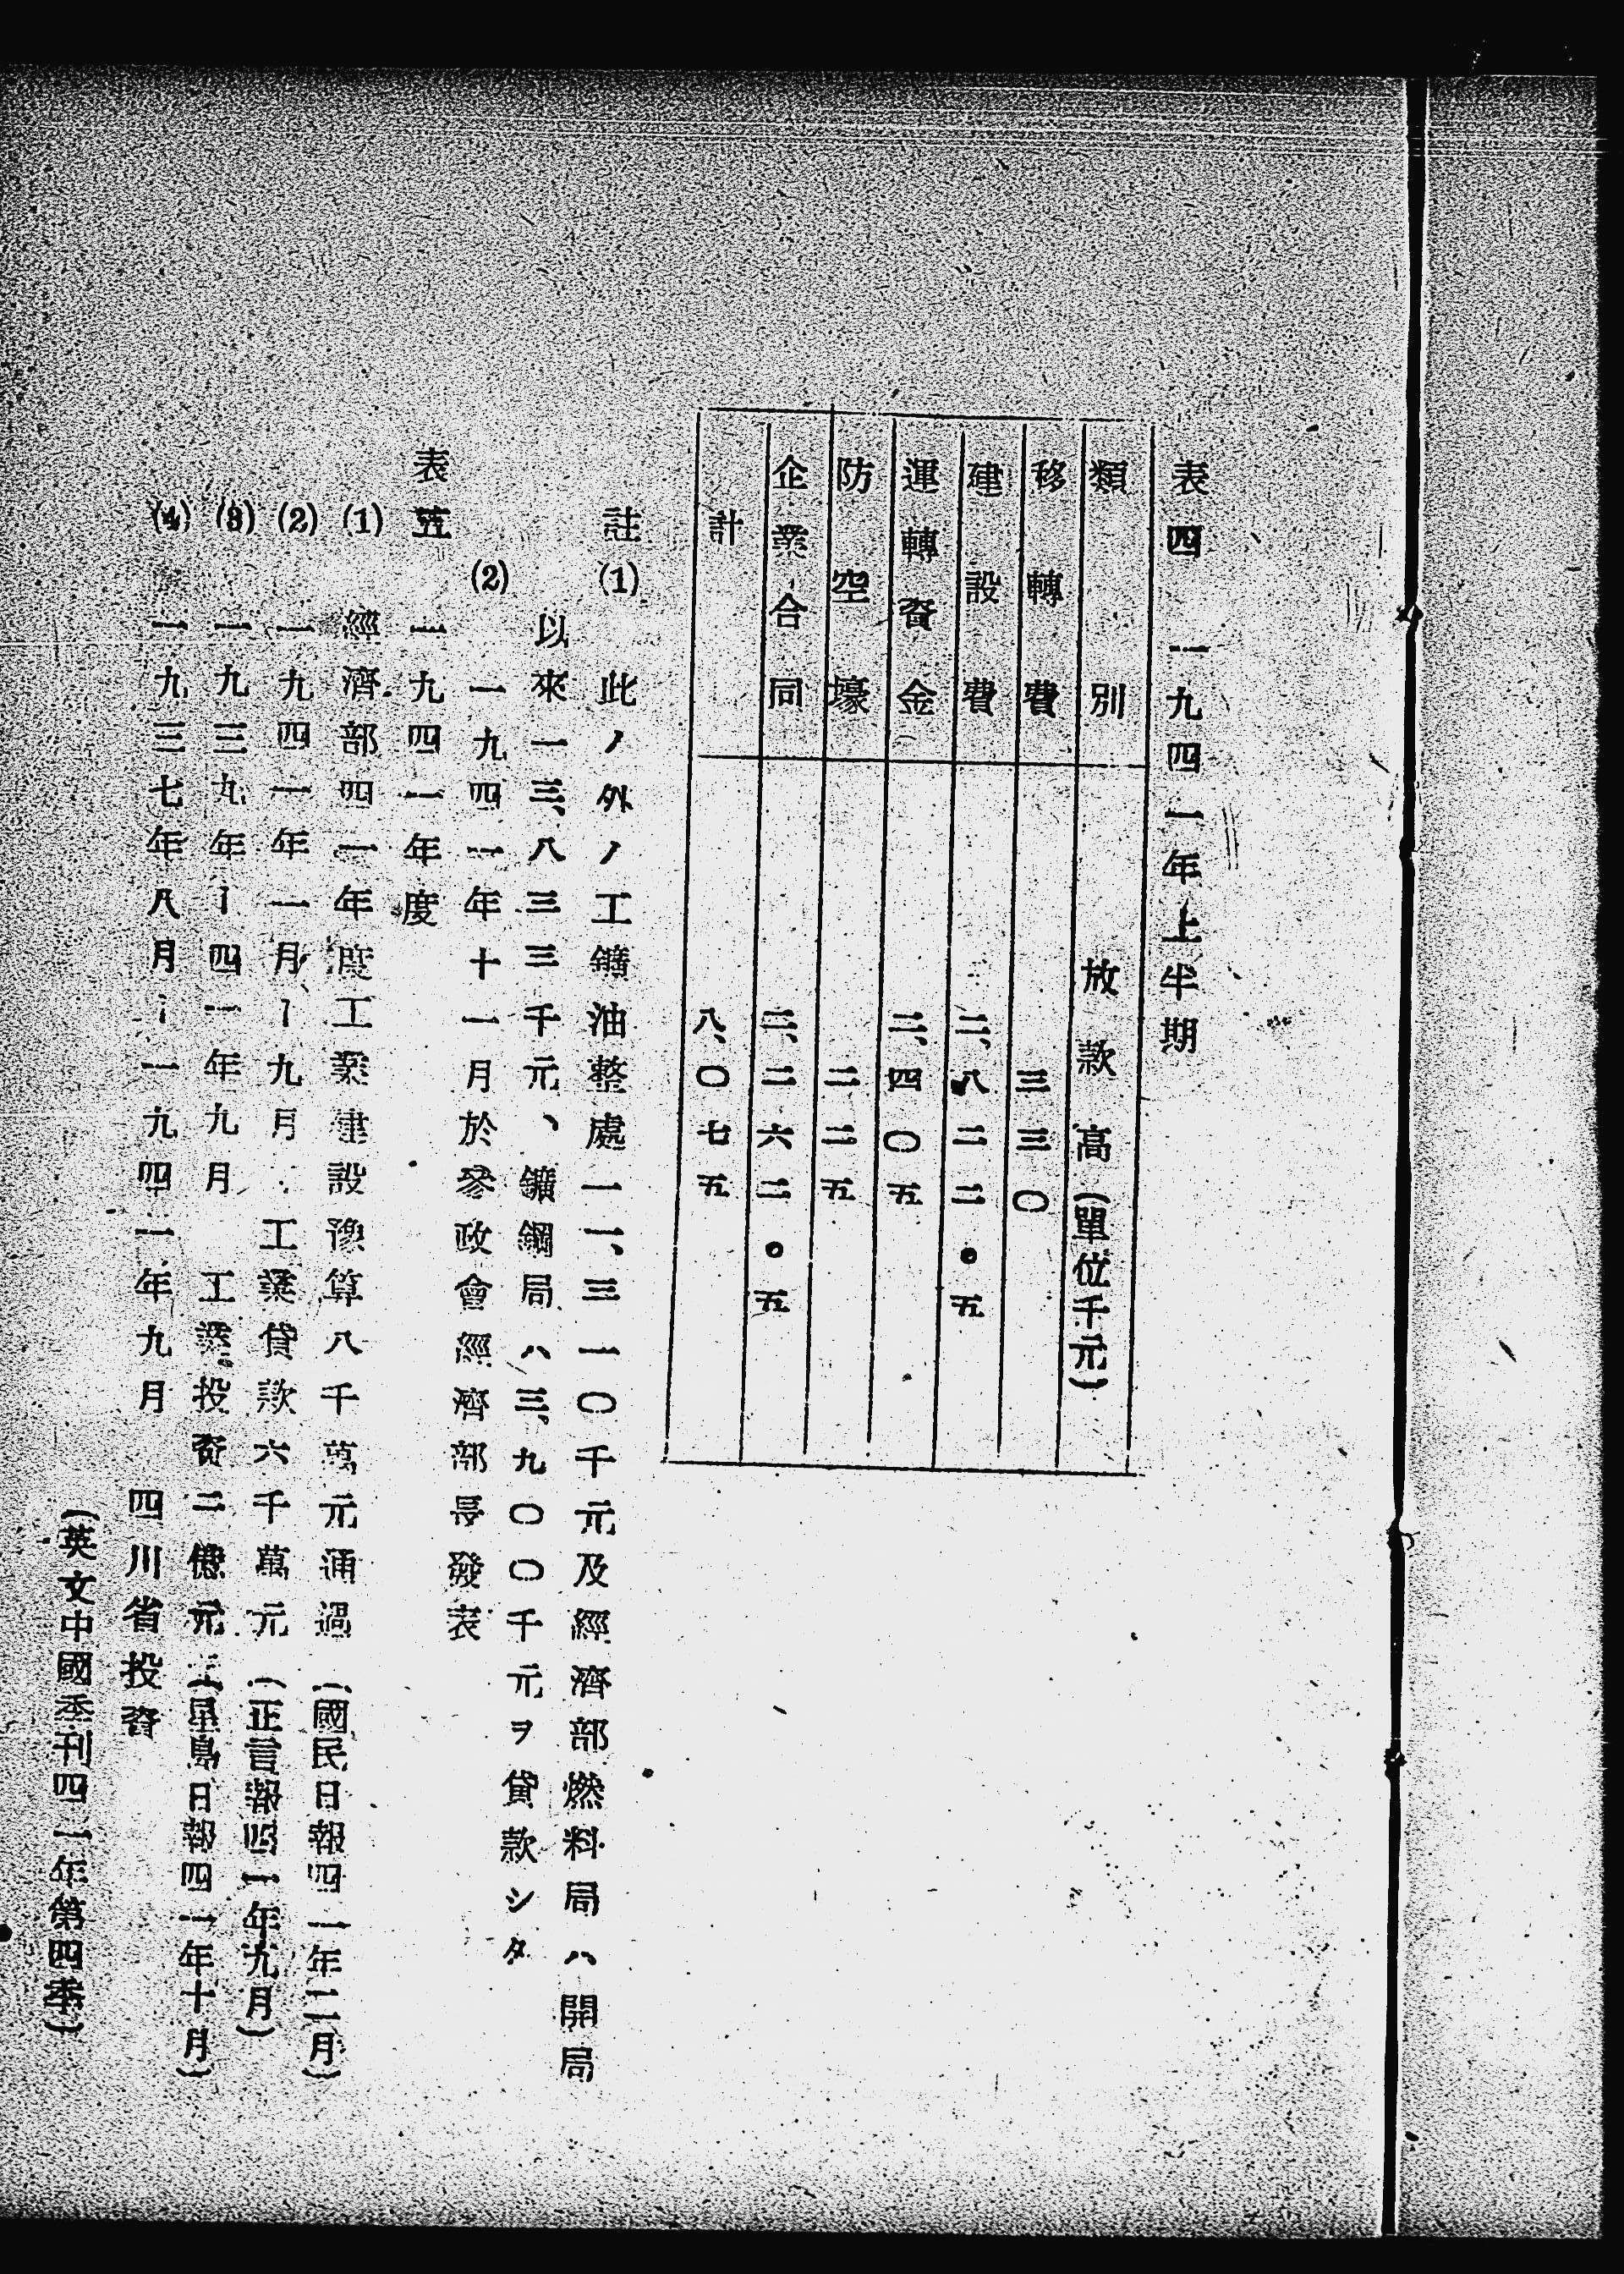 表四　一九四一年上半期
類別　放款高(單位千元)
移轉費　三三〇
建設費　二、八二二・五
運轉資金　二、四〇五
防空壕　二二五
企業合同　二、二六二・五
計　八、〇七五
註(1)　此ノ外ノ工鑛油整處一一、三一〇千元及經濟部燃料局ハ開局
以來一三、八三三千元、鑛鋼局ハ三、九〇〇千元ヲ貸款シタ
(2)　一九四一年十一月於參政會經濟部長發表
表五　一九四一年度
(1)　經濟部四一年度工業建設豫算八千萬元通過(國民日報四一年二月)
(2)　一九四一年一月ー九月：工業貸款六千萬元(正言報四一年九月)
(3)　一九三九年ー四一年九月　工業投資二億元(星島日報四一年十月)
(4)　一九三七年八月ー一九四一年九月　四川省投資
(英文中國季刊四一年第四季)